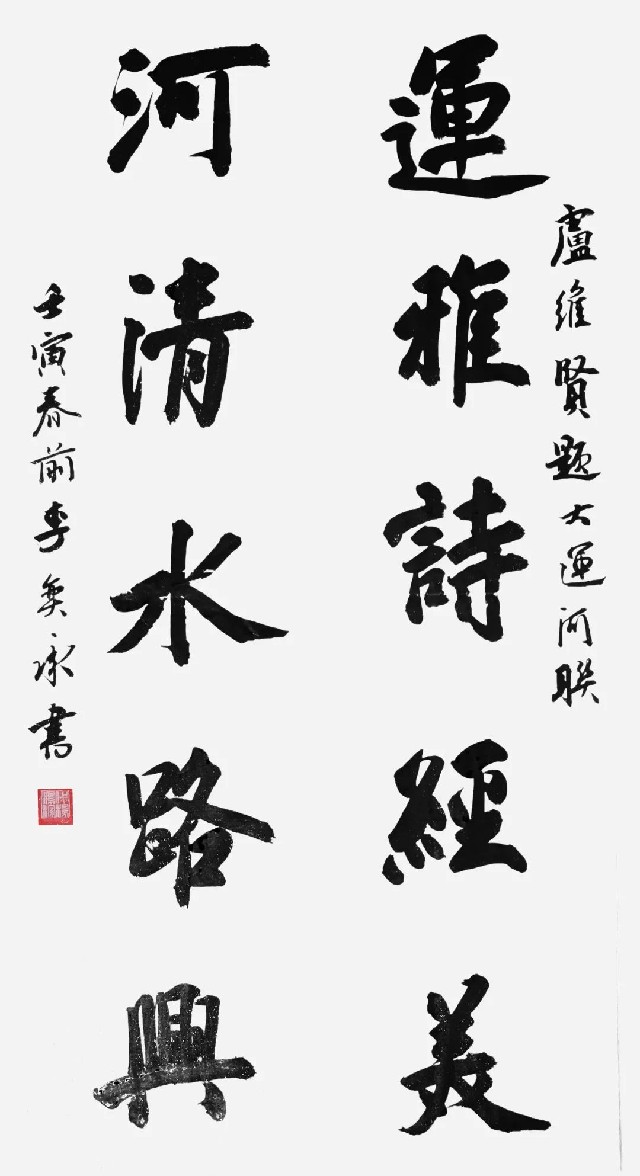 盧維賢題大運河聯
運雅詩經美
河清水路興
壬寅春前李奕承書